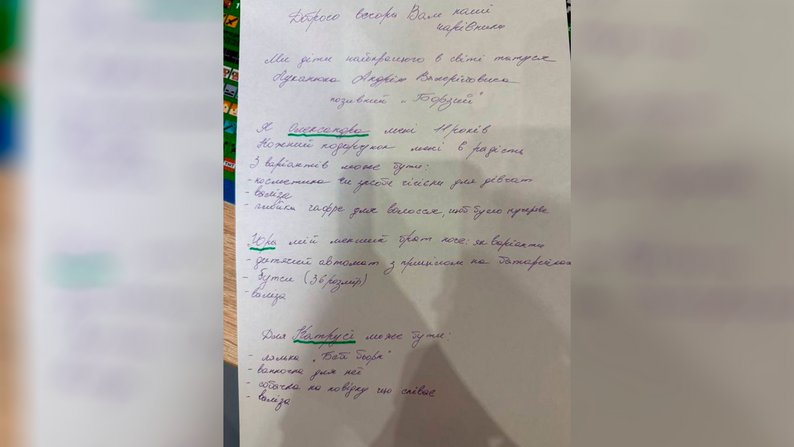 Доброго вечора Вам наші
чарівники
Ми діти найкращого в світі татуся
Луканюка Андрія Валерійовича
позивний „Борзий"
Я Олександра мені 11 років
Кожний подарунок мені в радість
З варіантів може бути:
- косметика чи засоби гігієни для дівчат
- валіза
- плойка гафре для волосся, щоб було кучеряве
Юра мій менший брат хоче: як варіанти
- дитячий автомат з прицілом на батарейках
- бутси (36 розмір)
- валіза
Для Катрусі може бути:
- лялька „Бебі борн"
- ванночка для неї
- собачка на повідку що співає
- валіза